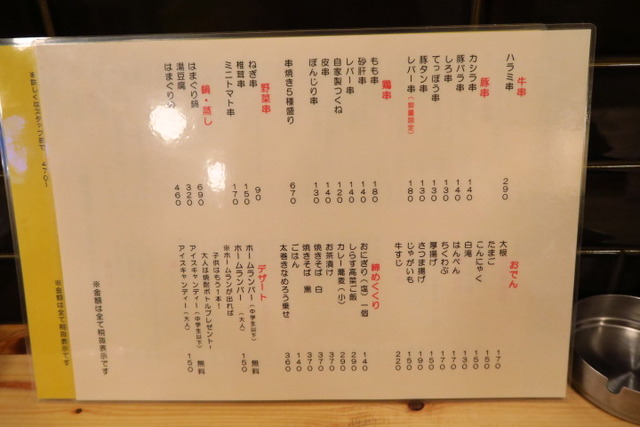 牛串
ハラミ串 290
豚串
カシラ串 140
豚バラ串 140
しろ串 130
てっぽう串 130
豚タン串 130
レバー串(数量限定) 180
鶏串
もも串 180
砂肝串 140
レバー串 140
自家製つくね 120
皮串 140
ぼんじり串 130
串焼き5種盛り 670
野菜串
ねぎ串 90
椎茸串 150
ミニトマト串 170
鍋・蒸し
はまぐり鍋 690
湯豆腐 320
はまぐり 460
おでん
大根 170
たまご 150
こんにゃく 150
白滝 130
はんぺん 170
ちくわぶ 170
厚揚げ 150
さつま揚げ 190
じゃがいも 150
牛すじ 220
締めくくり
おにぎり(塩)一個 140
しらす高菜ご飯 290
カレー蕎麦(小) 290
お茶漬け 370
焼きそば 白 370
焼きそば 黒 370
ごはん 140
太巻きなめろう乗せ 360
デザート
ホームランバー(中学生以下) 無料
ホームランバー(大人) 150
※ホームランが出れば
子供はもう1本!
大人は焼酎ボトルプレゼント!
アイスキャンディー(中学生以下) 無料
アイスキャンディー(大人) 150
※金額は全て税抜表示です
※金額は全て税抜表示です
470